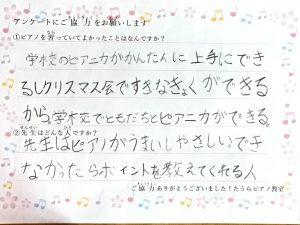 アンケートにご協力をお願いします
きょうりょく
①ピアノを習っていてよかったことはなんですか?
学校のピアニカがかんたんに上手にでき
るしクリスマス会ですきなきょくができる
から、学校でともだちとピアニカができる。
②先生はどんな人ですか?
先生はピアノがうまいしやさしいでき
なかったらポイントを教えてくれる人
ご協力ありがとうございました!たうらピアノ教室